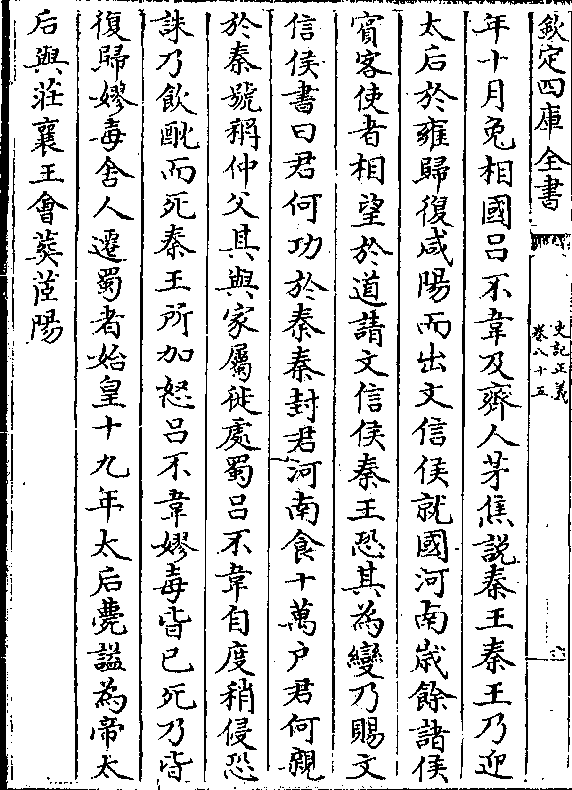 欽定四庫全書
史記正義
卷八十五
年十月免相國吕不韋及齊人茅焦説秦王秦王乃迎
太后於雍歸復咸陽而出文信侯就國河南歳餘諸侯
賔客使者相望於道請文信侯秦王恐其為變乃賜文
信侯書曰君何功於秦秦封君河南食十萬户君何親
於秦號稱仲父其與家屬徙處蜀吕不韋自度稍侵恐
誅乃飲酖而死秦王所加怒吕不韋嫪毐皆已死乃皆
復歸嫪毐舍人遷蜀者始皇十九年太后薨諡為帝太
后與莊襄王會葬茝陽